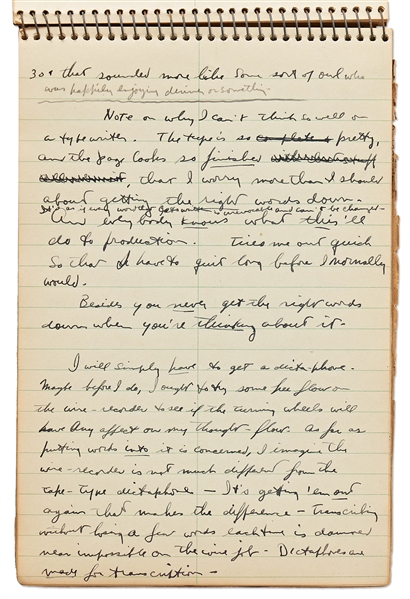 30 & that sounded more like some sort of owl who
was happily enjoying dinner or something.
Note on why I can't think so well on
a typewriter. The type is so complete & pretty,
and the page looks so finished
that I worry more than I should
about getting the right words down.
It's as if every word is and can't be changed
And everybody knows what this'll
do to production. Tires me out quick
So that I have to quit long before I normally
would.
Besides you never get the right words
down when you're thinking about it.
I will simply have to get a dictaphone.
Maybe before I do, I ought to try some free flow on
the wire-recorder to see if the turning wheels will
have any affect on my thought-flow. As far as
putting words into it is concerned, I imagine the
wire-recorder is not much different from the
tape-type dictaphones — It's getting 'em out
again that makes the difference — transcribing
without losing a few words each time is damned
near impossible on the wire job. Dictaphones are
made for transcription —